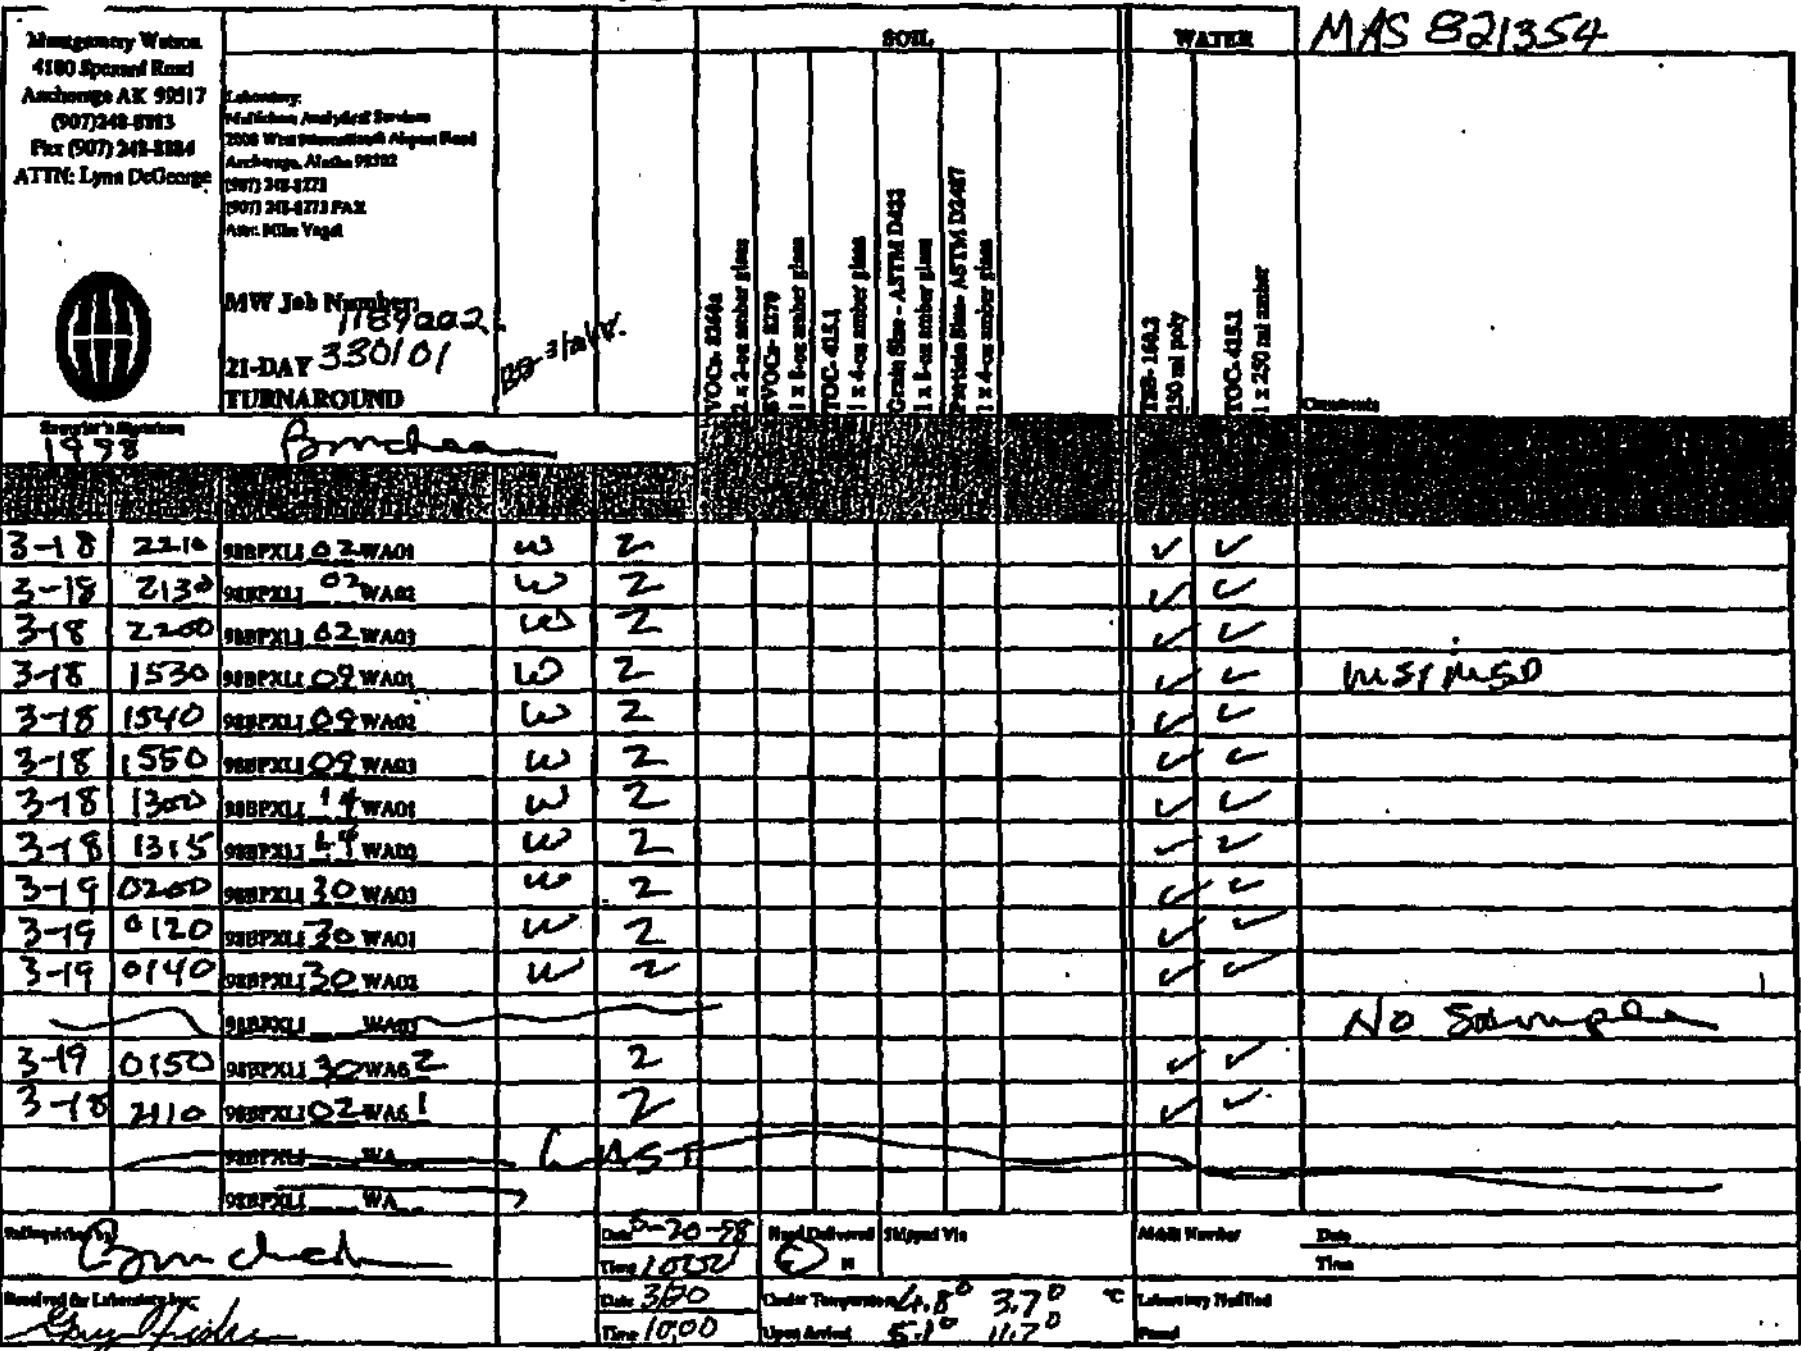 MAS 821354
Montgomery Watson
4100 Spenard Road
Anchorage AK 99517
(907)248-8883
Fax (907) 248-8884
ATTN: Lynn DeGeorge
Laboratory:
Multichem Analytical Services
2000 West International Airport Road
Anchorage, Alaska 99502
(907) 248-8273
(907) 248-8273 FAX
Attn: Mike Vogel
MW Job Number:
1189002.
330101
21-DAY
TURNAROUND
SOIL
WATER
VOCs- 8260a
2 x 2-oz amber glass
SVOCs- 8270
1 x 8-oz amber glass
TOC- 415.1
1 x 4-oz amber glass
Grain Size - ASTM D422
1 x 8-oz amber glass
Particle Size- ASTM D2487
1 x 4-oz amber glass
250 ml poly
TOC- 415.1
1 x 250 ml amber
Comments
Sampler's Signature
1998
3-18 2210 98BPXLI 02 WA01 W 2 ✓ ✓
3-18 2130 98BPXLI 02 WA02 W 2 ✓ ✓
3-18 2200 98BPXLI 02 WA03 W 2 ✓ ✓
3-18 1530 98BPXLI 09 WA01 W 2 ✓ ✓ MS/MSD
3-18 1540 98BPXLI 09 WA02 W 2 ✓ ✓
3-18 1550 98BPXLI 09 WA03 W 2 ✓ ✓
3-18 1300 98BPXLI 14 WA01 W 2 ✓ ✓
3-18 1315 98BPXLI 14 WA02 W 2 ✓ ✓
3-19 0200 98BPXLI 30 WA03 W 2 ✓ ✓
3-19 0120 98BPXLI 30 WA01 W 2 ✓ ✓
3-19 0140 98BPXLI 30 WA02 W 2 ✓ ✓
98BPXLI ___ WA03 No Sample
3-19 0150 98BPXLI 30 WA6 2 2 ✓ ✓
3-18 2110 98BPXLI 02 WA6 1 2 ✓ ✓
98BPXLI ___ WA__ LAST
98BPXLI ___ WA__
Relinquished by
Date -20-98
Time 1000
Hand Delivered
N
Shipped Via
Airbill Number
Date
Time
Received for Laboratory by:
Date 3/20
Time 10:00
Cooler Temperature 4.8° 3.7° °C
Upon Arrival 5.1° 11.7°
Laboratory Notified